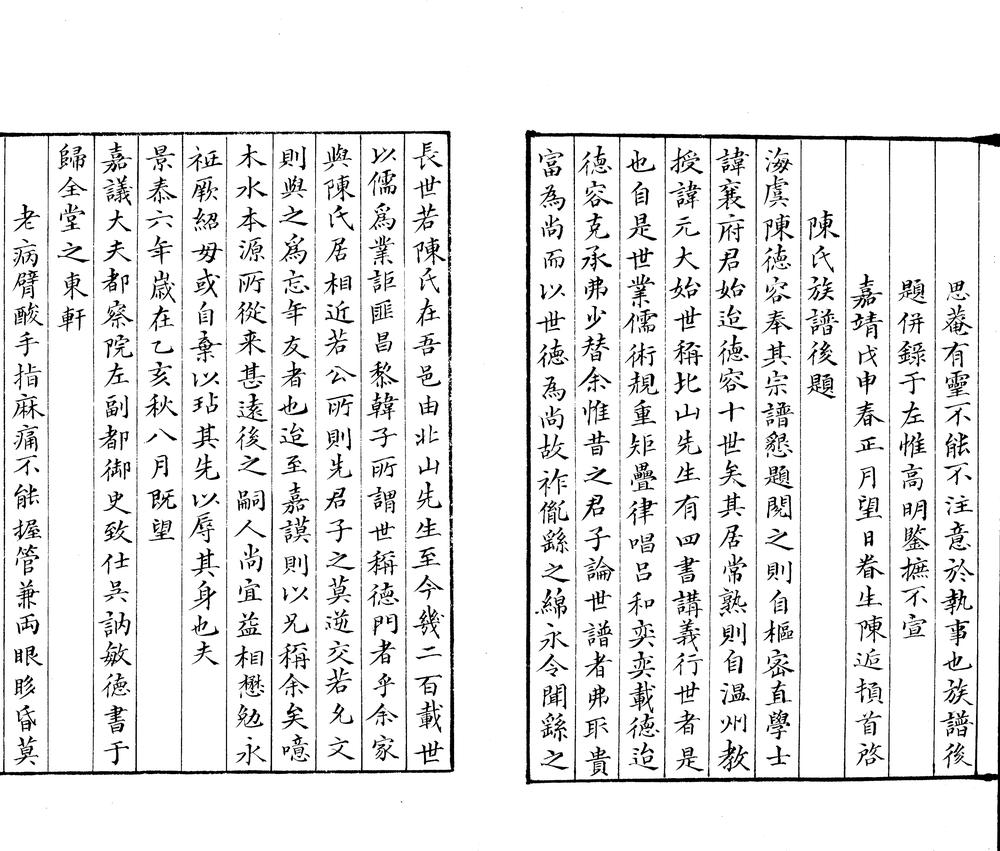 思菴有靈不能不注意於執事也族譜後
題併錄于左惟高明鑒擴不宣
嘉靖戊申春正月望日眷生陳逅頓首啓
陳氏族譜後題
海虞陳德容奉其宗譜懇題閱之則自樞密直學士
諱襄府君始迨德容十世矣其居常熟則自溫州教
授諱元大始世稱北山先生有四書講義行世者是
也自是世業儒術規重矩疊律唱呂和奕奕載德迨
德容克承弗少替余惟昔之君子論世譜者弗取貴
富為尚而以世德為尚故祚胤繇之綿永令聞繇之
長世若陳氏在吾邑由北山先生至今幾二百載世
以儒爲業詎匪昌黎韓子所謂世稱德門者乎余家
與陳氏居相近若公所則先君子之莫逆交若允文
則與之爲忘年友者也迨至嘉謨則以兄稱余矣噫
木水本源所從来甚遠後之嗣人尚宜益相懋勉永
祗厥紹毋或自棄以玷其先以辱其身也夫
景泰六年嵗在乙亥秋八月既望
嘉議大夫都察院左副都御史致仕吳訥敏德書于
歸全堂之東軒
老病臂酸手指麻痛不能握管兼両眼昏莫